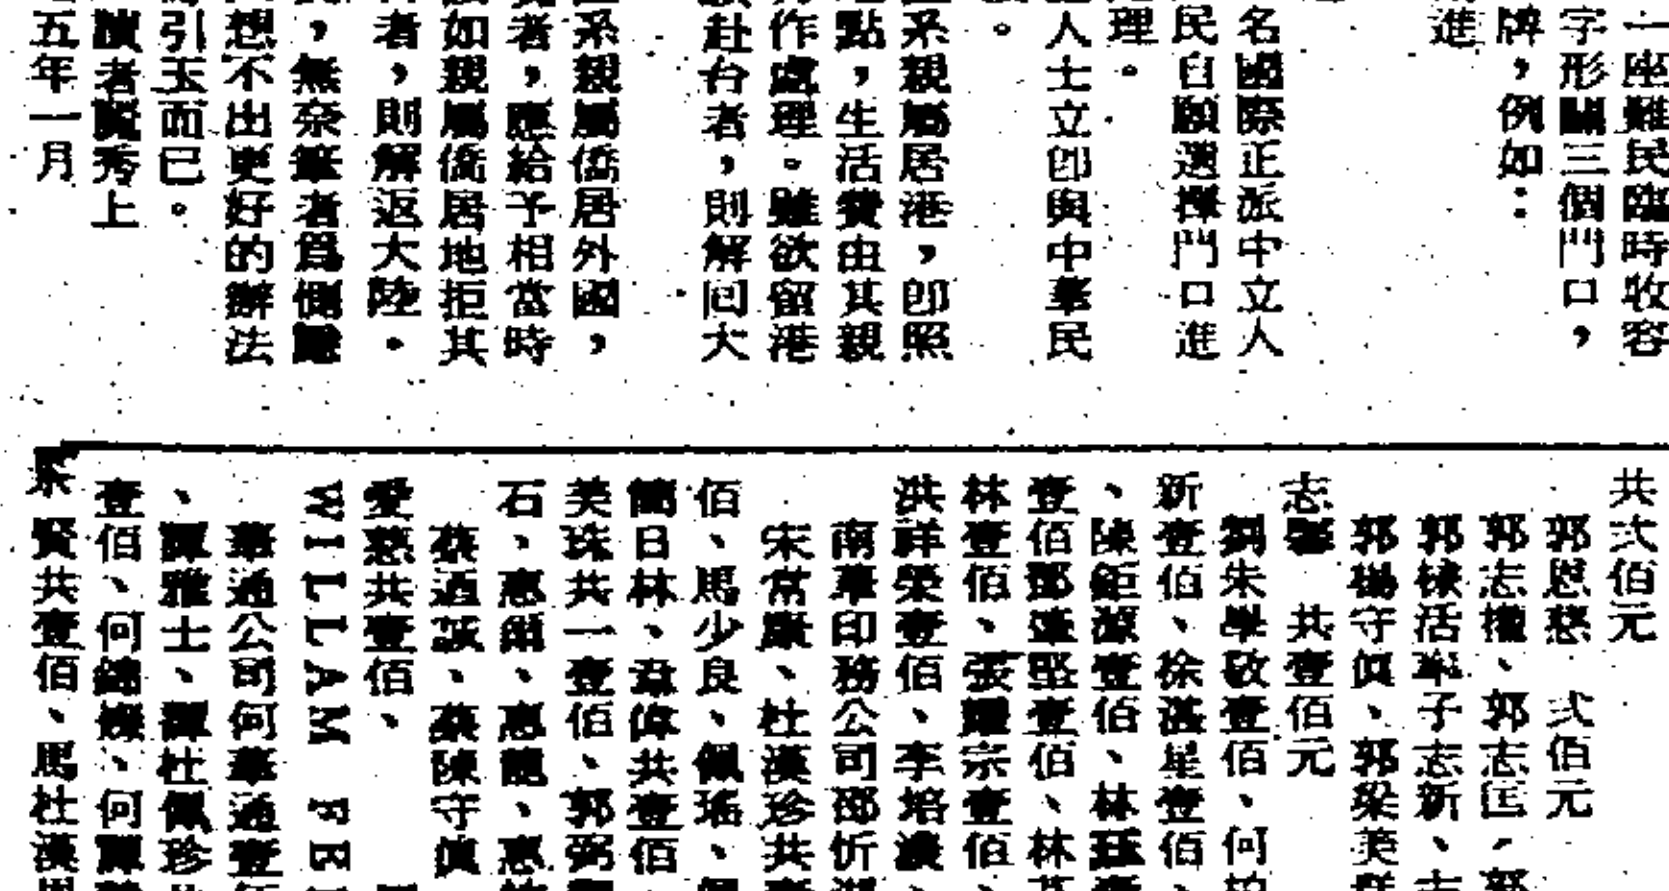 一座難民臨時收容
字形關三個鬥口，
牌，例如：
進
名國際正派中立人
民自願選擇鬥口進
理。
人士立卽與中華民
。
系親屬居港，卽照
點，生活費由其親
作處理。雖欲留港
赴台者，則解回大
系親屬僑居外國，
者，應給予相當時
如親屬僑居地拒其
者，則解返大陸。
，無奈筆者爲惻隱
想不出更好的辦法
引玉而已。
讀者賢秀上
五年一月
共弍佰元
郭恩慈　弍佰元
郭志權、郭志匡，郭
郭棣活 子志新、志
郭楊守眞、郭梁美
志 　共壹佰元
劉朱學敏壹佰、何柏
新壹佰、徐湛星壹佰
、陳鉅源壹佰、林
壹佰鄧 堅壹佰、林
林壹佰、張耀宗壹佰、
洪祥榮壹佰、李培
南華印務公司邵忻湖
宋常康、杜漢珍共壹
佰、馬少良、佩瑤、
簡日林、韋偉共壹佰
美珠共一壹佰、郭弼
石、惠 、惠 、惠
蔡迺誠、蔡陳守眞
愛慈共壹佰、
WILLAM FE
華通公司何華通壹
、譚雅士、譚杜佩珍
壹佰、何錦 、何譚
賢共壹佰、馬杜漢